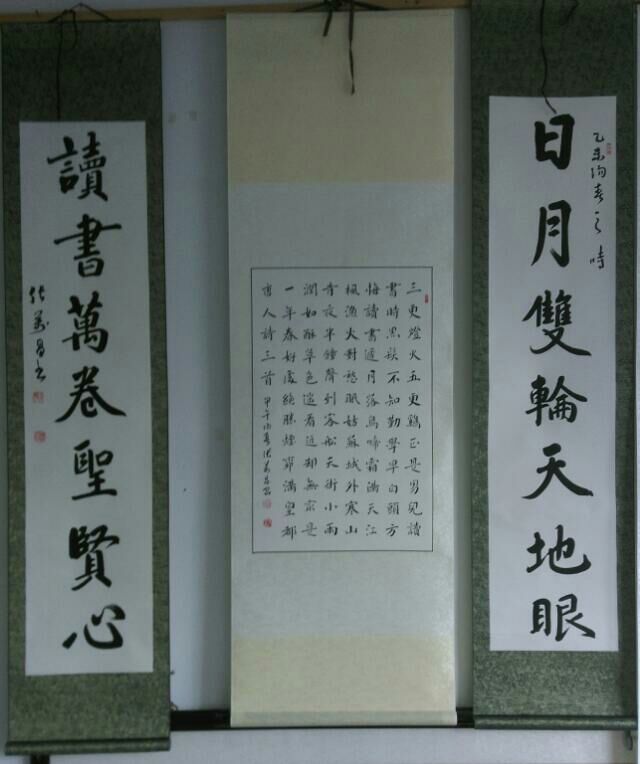 乙未春之時
日月雙輪天地眼
三更燈火五更鷄正是男兒讀
書時黑髮不知勤學早白頭方
悔讀書遲月落烏啼霜滿天江
楓漁火對愁眠姑蘇城外寒山
寺夜半鐘聲到客船天街小雨
潤如酥草色遥看近却無最是
一年春好處絶勝煙柳滿皇都
唐人詩三首 甲午春張萬昌書
讀書萬卷聖賢心
張萬昌书